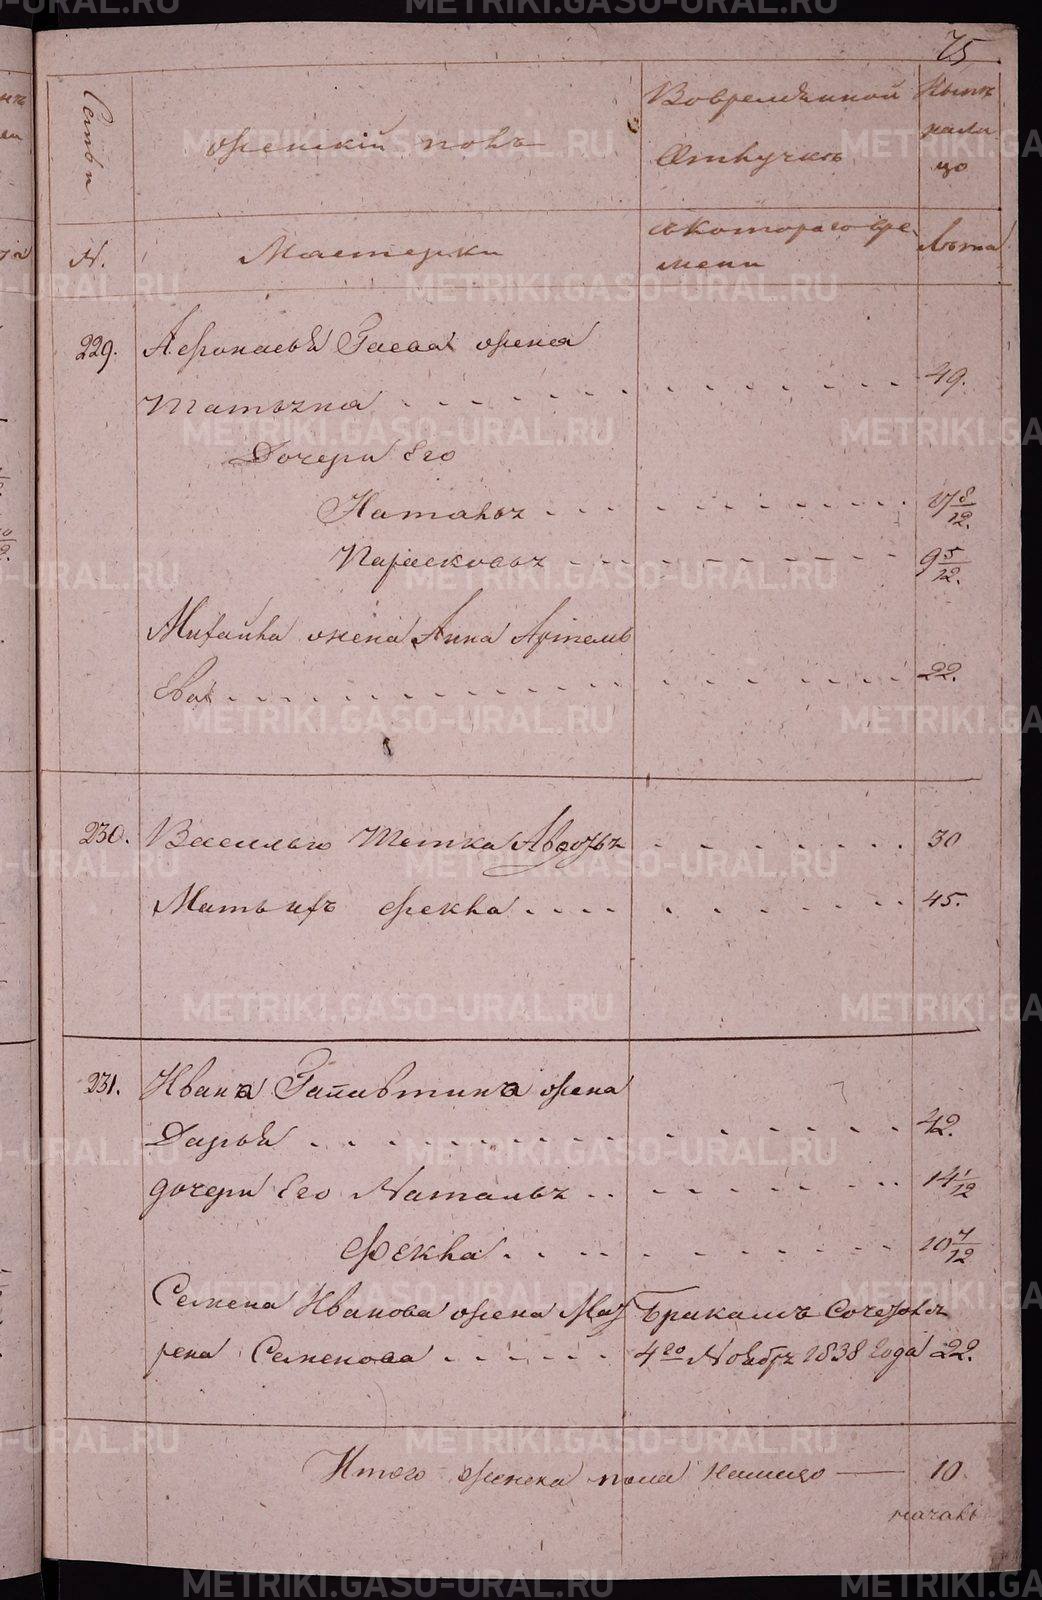 75
Семьи
женскiй полъ
Вовремѣнной
Отлучкѣ
Нынѣ
нали
цо
N.
Мастерки
съкотораго вре
мени
Лѣта
229.
жена
Татьяна
49.
Дочери Его
Наталья
17 8/12.
Парасковья
9 5/12.
Михайла жена Анна Артемь
ева
22.
230.
Василью Тетка Авдотья
30
Мать ихъ Фекла
45.
231.
Ивана жена
Дарья
42.
дочери Его Наталья
14 1/12
Фекла
10 7/12
Семена Иванова жена Мат
Бракамъ
рена Семенова
4го Ноября 1838 Года
22.
Итого женска пола налицо
10
METRIKI.GASO-URAL.RU